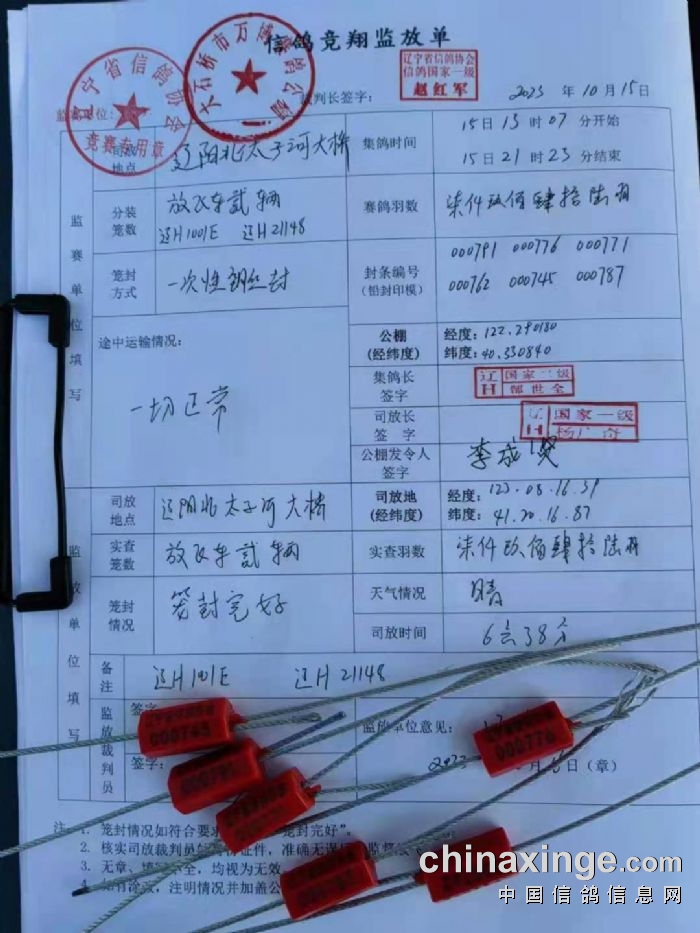 信鸽竞翔监放单
辽宁省信鸽协会
竞赛专用章
大石桥市万博赛鸽公棚
裁判长签字：
辽宁省信鸽协会
信鸽国家一级
赵红军
2023 年 10月15日
监赛单位填写
司放地点
辽阳北太子河大桥
集鸽时间
15日13时07分开始
15日21时23分结束
分装笼数
放飞车贰辆
辽H1001E 辽H21148
赛鸽羽数
柒仟玖佰肆拾陆羽
笼封方式
一次性钢丝封
封条编号
(铅封印模)
000791 000776 000771
000762 000745 000787
途中运输情况：
一切正常
公棚
(经纬度)
经度：122.290180
纬度：40.330840
集鸽长签字
辽H 国家二级
郜世全
司放长签字
辽H 国家一级
杨广奇
公棚发令人签字
李成
监放单位填写
司放地点
辽阳北太子河大桥
司放地
(经纬度)
经度：123.08.16.39
纬度：41.20.16.87
实查笼数
放飞车贰辆
实查羽数
柒仟玖佰肆拾陆羽
笼封情况
笼封完好
天气情况
晴
司放时间
6点38分
备注
辽H1001E 辽H21148
监放裁判员
签字：
签字：
监放单位意见：
日（章）
000776
注：1. 笼封情况如符合要求
笼封完好”。
2. 核实司放裁判员
证件，准确无误
监督
3. 无章、
全，均视为无效
4.
有涂改，注明情况并加盖公
chinaxinge.com
中国信鸽信息网